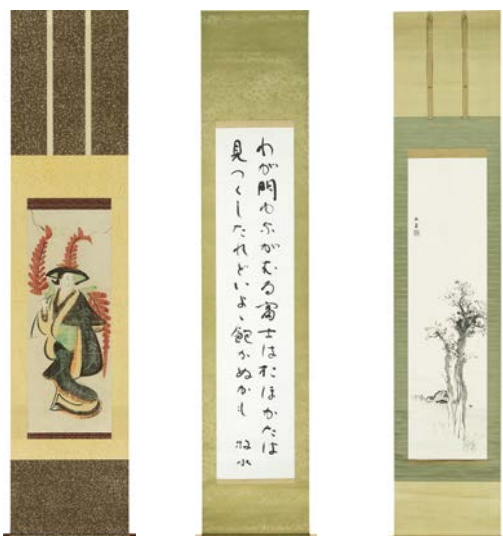 わが門ゆながむる富士はおほかたは
見つくしたれどいよゝ飽かぬかも 牧水